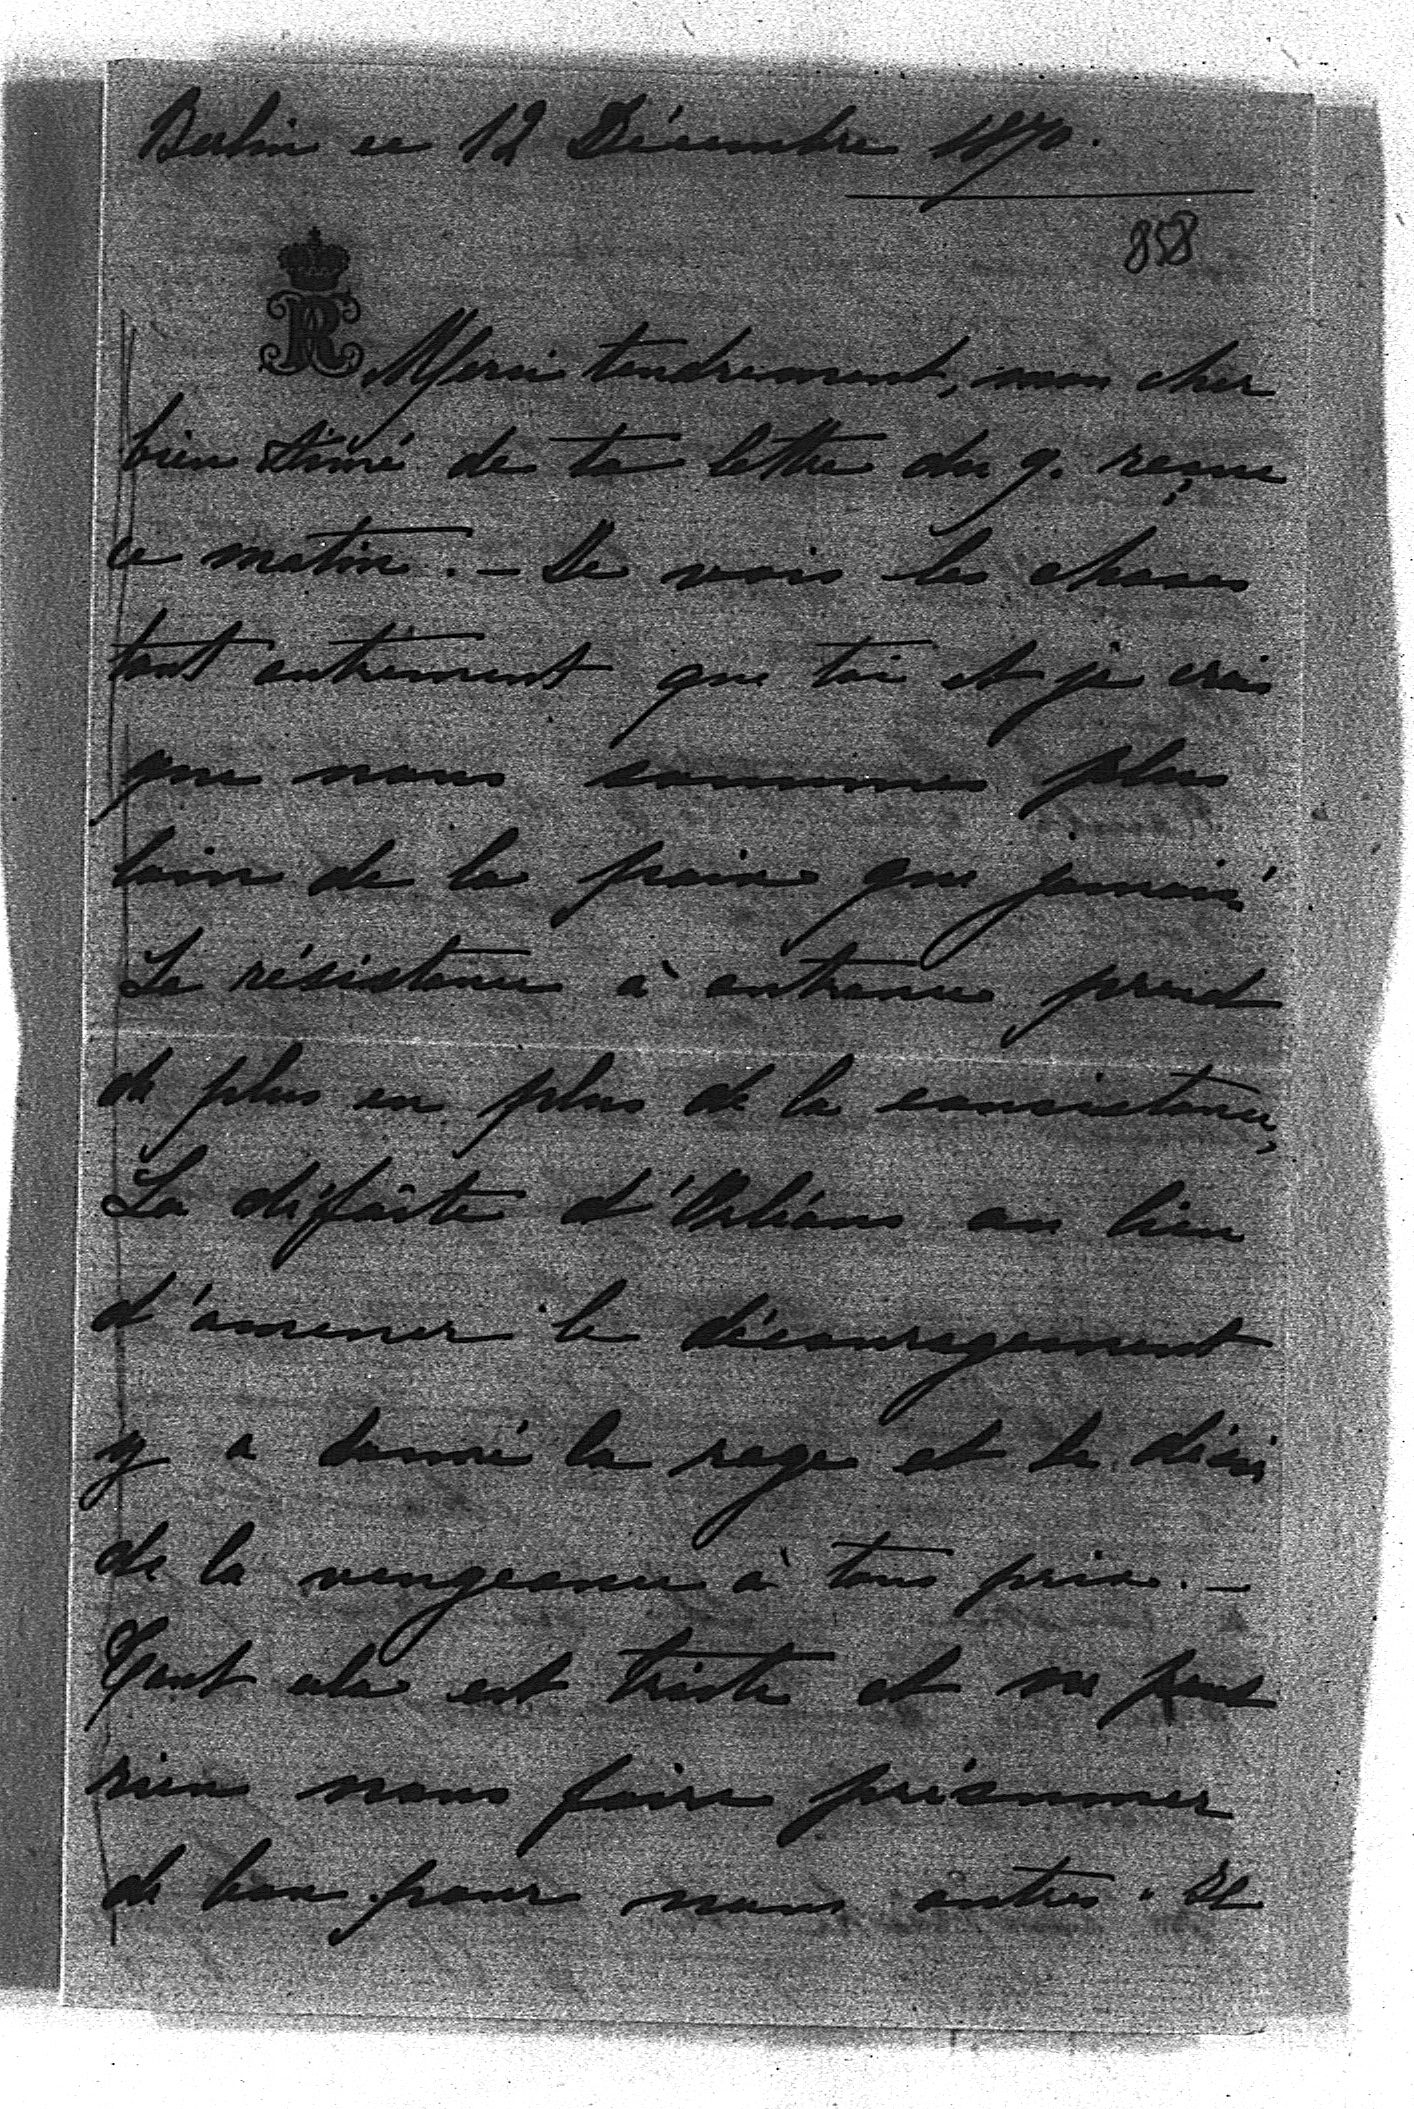 Berlin ce 12 Décembre 1870.
858
R Merci tendrement, mon cher
bien Aimé de ta lettre du 9. reçue
ce matin. – Je vois les choses
tout autrement que toi et je crois
que nous sommes plus
loin de la paix que jamais.
La résistance à outrance prend
de plus en plus de la consistance,
La défaite d'Orléans au lieu
d'amener le découragement
y a donné la rage et le désir
de la vengeance à tous prix. –
Tout cela est triste et ne peut
rien nous faire présumer
de bon pour nous autres. Il